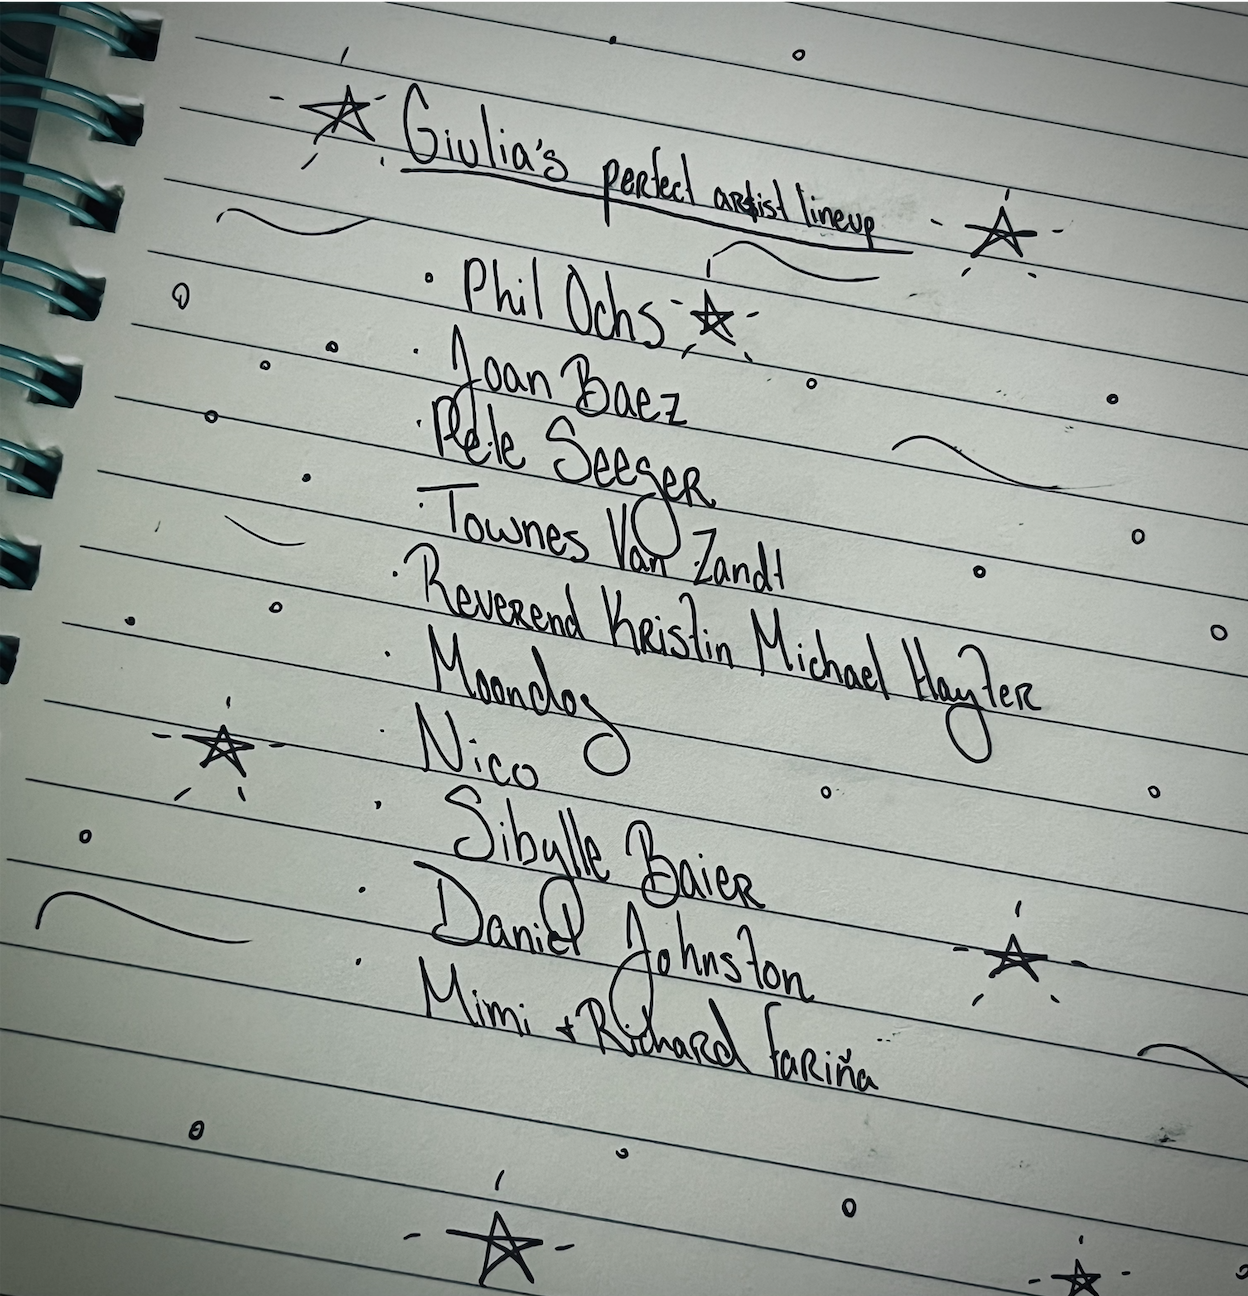 Giulia's perfect artist lineup
· Phil Ochs
· Joan Baez
· Pete Seeger
· Townes Van Zandt
· Reverend Kristin Michael Hayter
· Moondog
· Nico
· Sibylle Baier
· Daniel Johnston
· Mimi + Richard Fariña